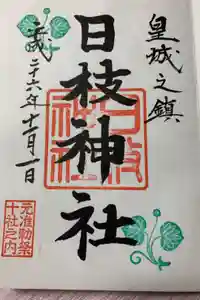 皇城之鎮
日枝神社
平成二十六年十一月一日
元准勅祭
十社之内
日枝
神社